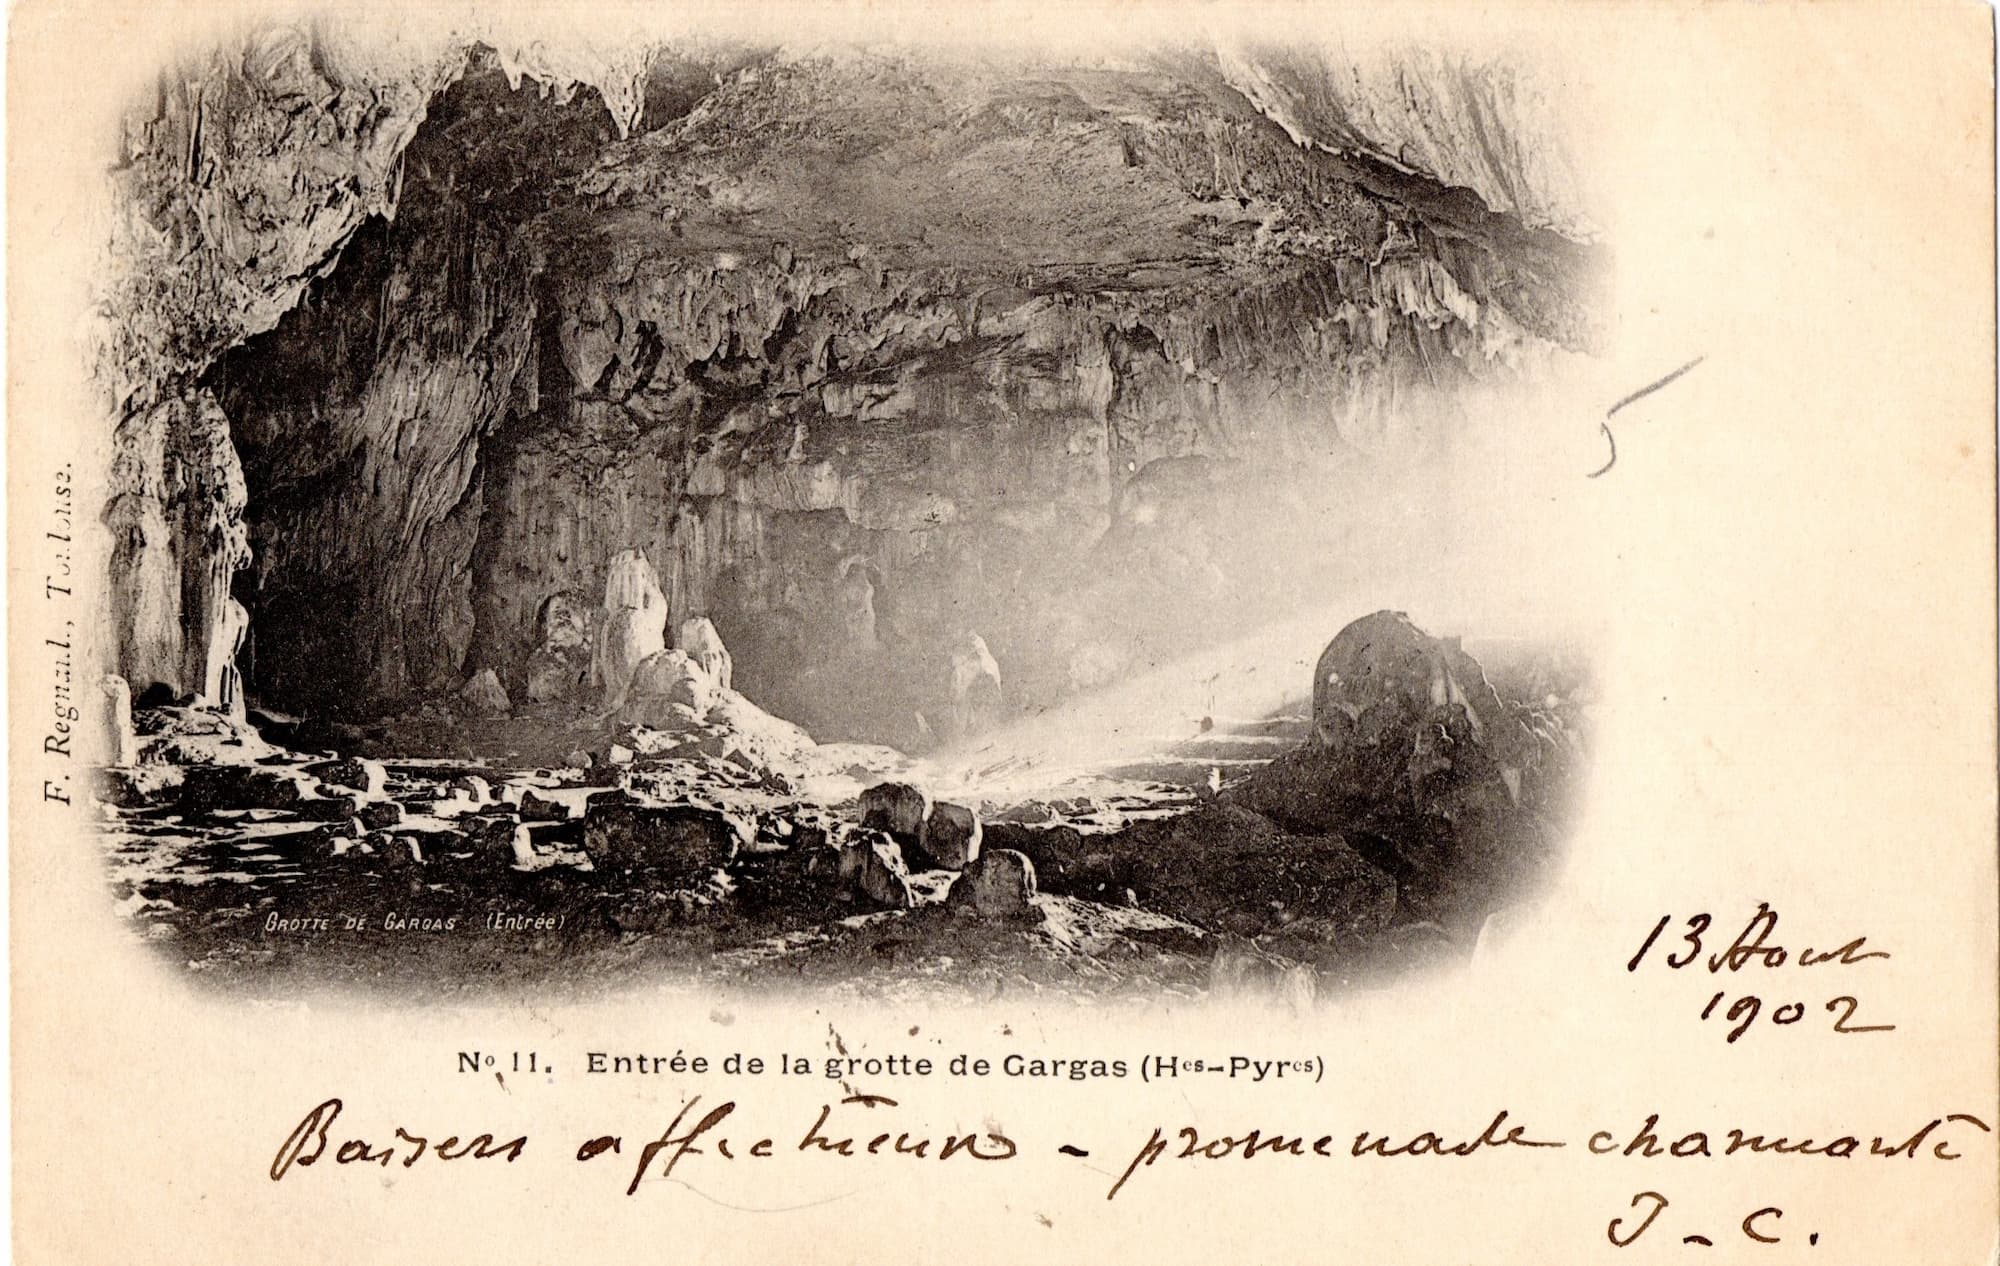 F. Regnault, Toulouse.
5
GROTTE DE GARGAS (Entrée)
13 Aout
1902
No 11. Entrée de la grotte de Gargas (Hes-Pyres)
Baisers affectueux - promenade charmante
J-C.